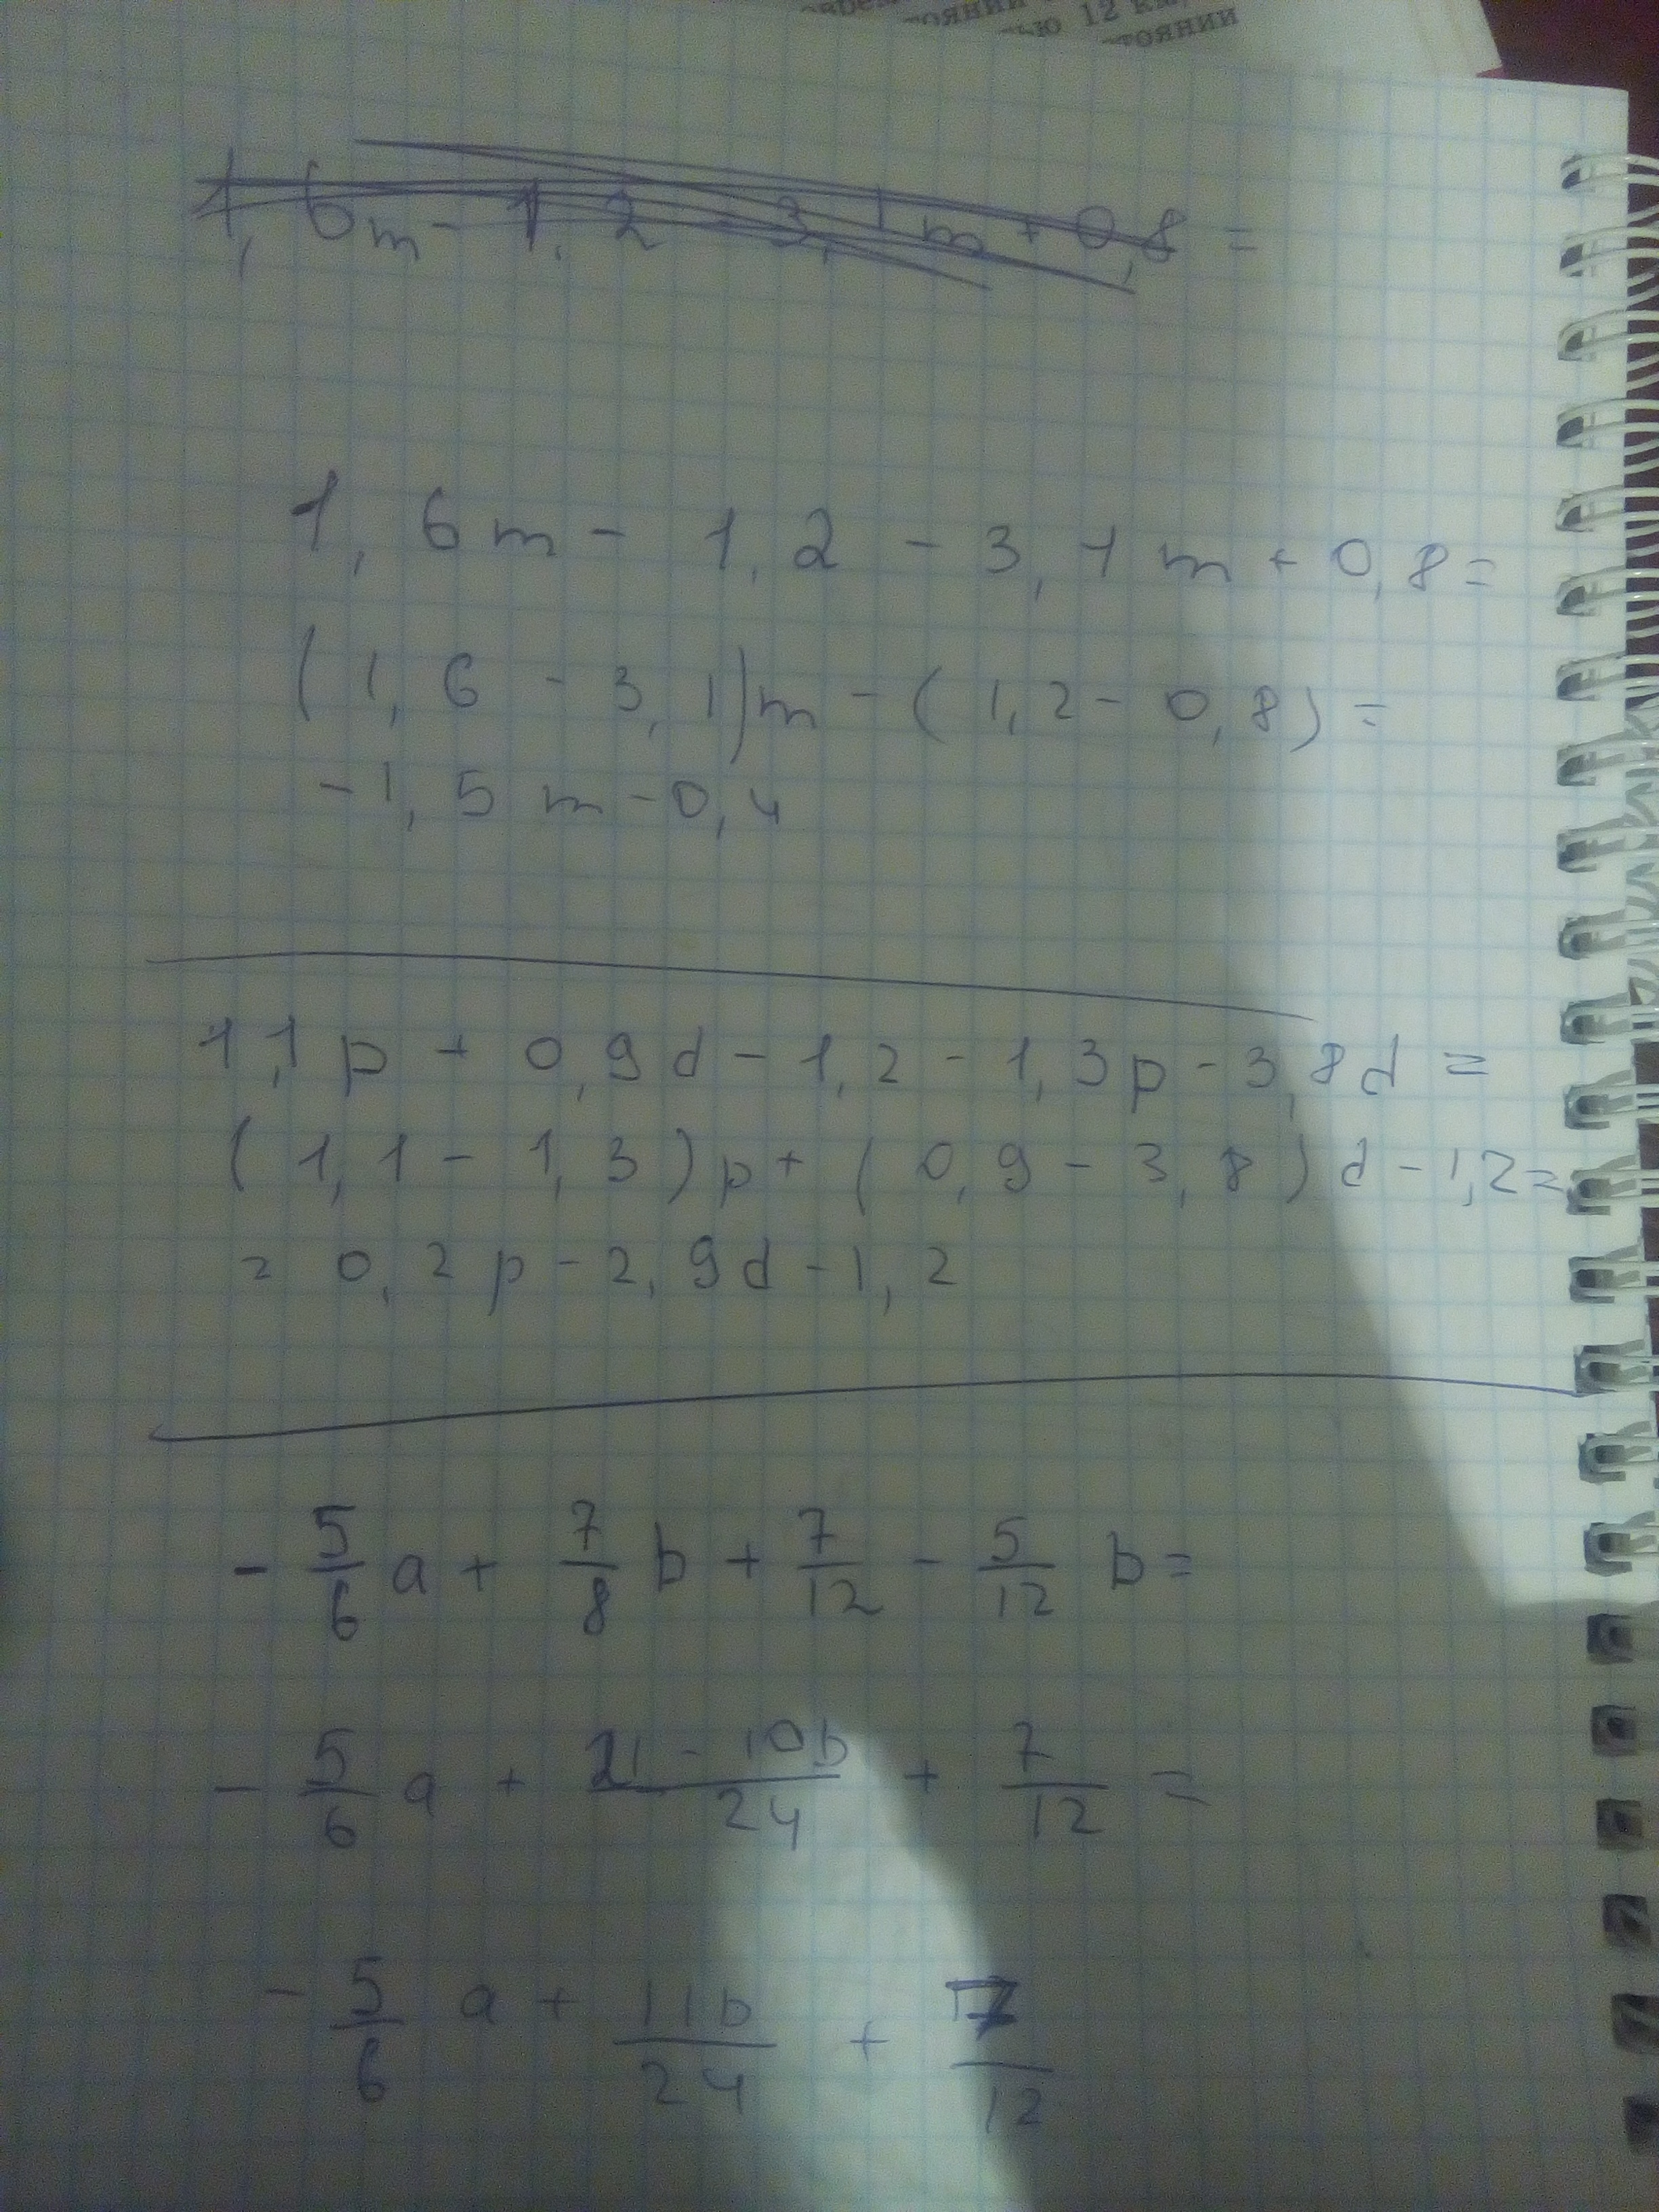 тоянии
тью 12 км
тоянии
1,6m - 1,2 - 3,1m + 0,8 =
1,6m - 1,2 - 3,1m + 0,8 =
(1,6 - 3,1)m - (1,2 - 0,8) =
-1,5m - 0,4
1,1p + 0,9d - 1,2 - 1,3p - 3,8d =
(1,1 - 1,3)p + (0,9 - 3,8)d - 1,2 =
= 0,2p - 2,9d - 1,2
- 5/6 a + 7/8 b + 7/12 - 5/12 b =
- 5/6 a + 21 - 10b/24 + 7/12 =
- 5/6 a + 11b/24 + 7/12